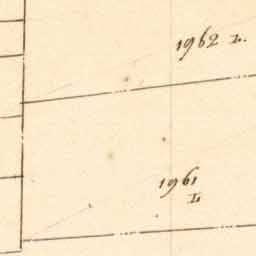 1962 L.
1961
L